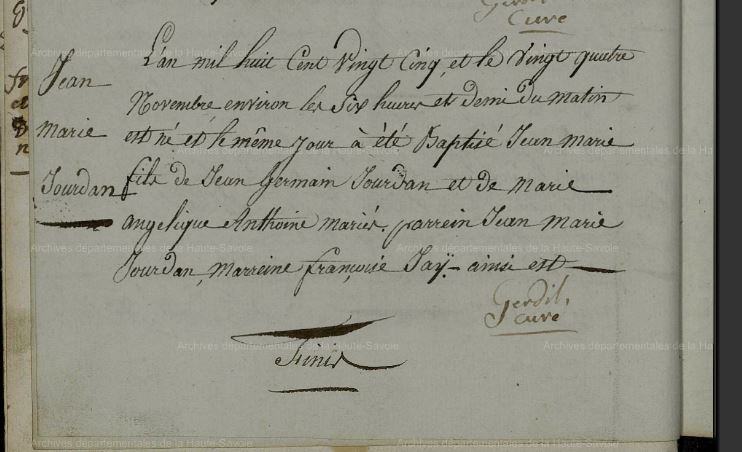 Gerdil
Curé
Jean
marie
Jourdan
L'an mil huit Cent Vingt Cinq, et le Vingt quatre
Novembre environ les Six heures et demi du matin
est né et le même jour à été Baptisé Jean marie
fils de Jean Germain Jourdan et de marie
angelique Anthoine mariés. parrein Jean marie
Jourdan, Marreine françoise Jaÿ - ainsi est
Gerdil,
curé
Finis
Archives départementales de la Haute-Savoie
Archives départementales de la Haute-Savoie
Archives départementales de la Haute-Savoie
Archives départementales de la Haute-Savoie
Archives départementales de la Haute-Savoie
Archives départementales de la Haute-Savoie
Archives départementales de la Haute-Savoie